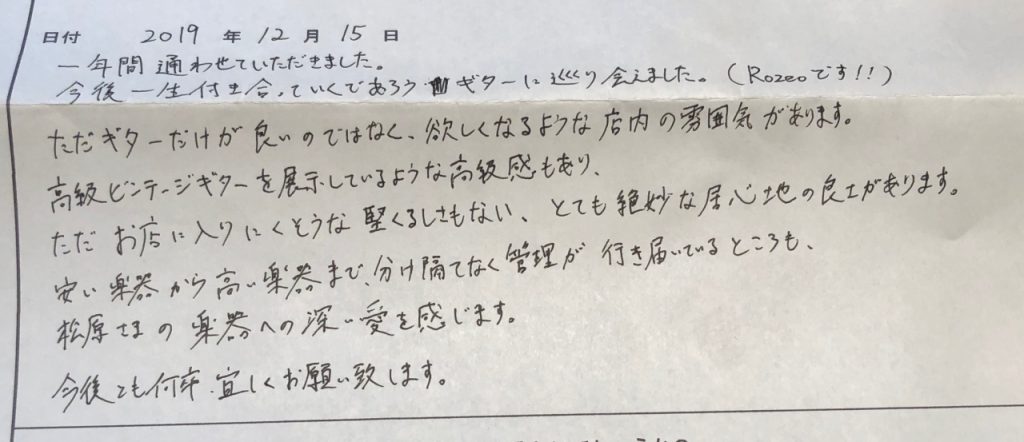 日付 2019年12月15日
一年間通わせていただきました。
今後一生付き合っていくであろうギターに巡り会えました。(Rozeoです!!)
ただギターだけが良いのではなく、欲しくなるような店内の雰囲気があります。
高級ビンテージギターを展示しているような高級感もあり、
ただお店に入りにくそうな堅くるしさもない、とても絶妙な居心地の良さがあります。
安い楽器から高い楽器まで、分け隔てなく管理が行き届いているところも、
松原さまの楽器への深い愛を感じます。
今後とも何卒、宜しくお願い致します。